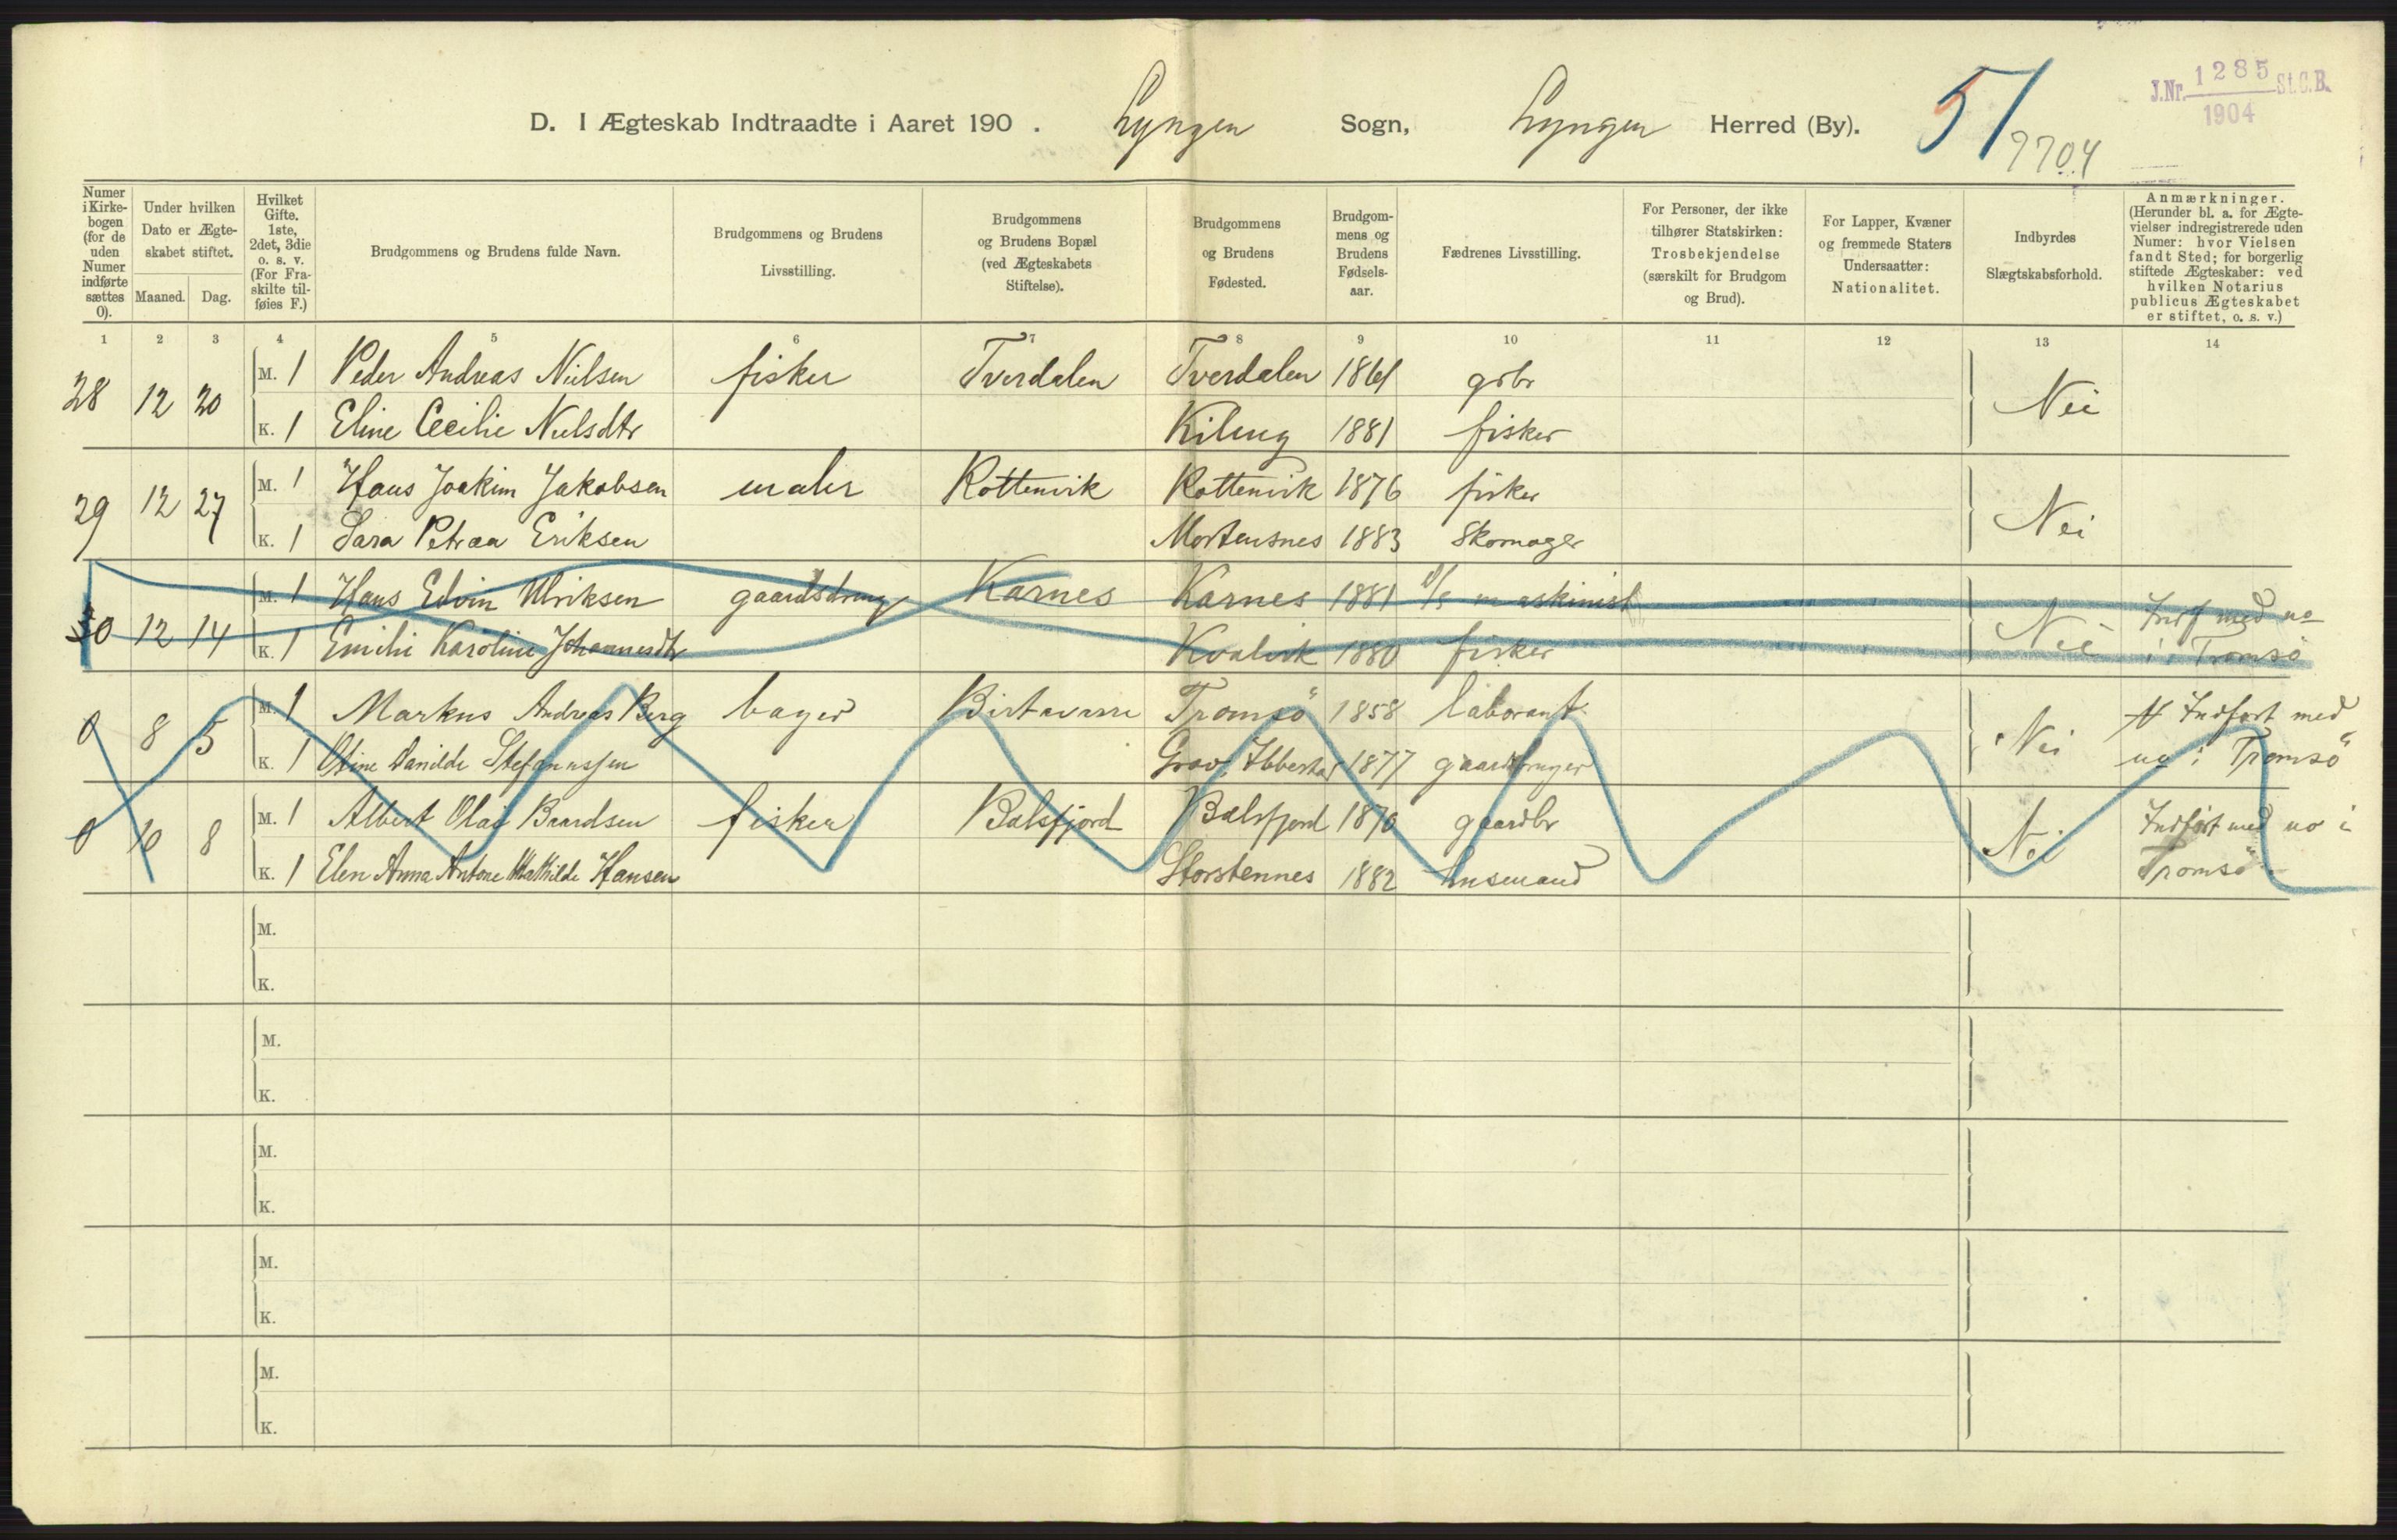 J.Nr. 1285 St.C.B.
1904
D. I Ægteskab Indtraadte i Aaret 190 . Lyngen Sogn, Lyngen Herred (By). 51
7704
Numer i Kirkebogen (for de uden Numer indførte sættes 0).
Under hvilken Dato er Ægteskabet stiftet.
Maaned. Dag.
Hvilket Gifte. 1ste, 2det, 3die o. s. v. (For Fraskilte tilføies F.)
Brudgommens og Brudens fulde Navn.
Brudgommens og Brudens Livsstilling.
Brudgommens og Brudens Bopæl (ved Ægteskabets Stiftelse).
Brudgommens og Brudens Fødested.
Brudgommens og Brudens Fødselsaar.
Fædrenes Livsstilling.
For Personer, der ikke tilhører Statskirken: Trosbekjendelse (særskilt for Brudgom og Brud).
For Lapper, Kvæner og fremmede Staters Undersaatter: Nationalitet.
Indbyrdes Slægtskabsforhold.
Anmærkninger. (Herunder bl. a. for Ægtevielser indregistrerede uden Numer: hvor Vielsen fandt Sted; for borgerlig stiftede Ægteskaber: ved hvilken Notarius publicus Ægteskabet er stiftet, o. s. v.)
1 2 3 4 5 6 7 8 9 10 11 12 13 14
28 12 20 M. 1 Peder Andreas Nielsen fisker Tverdalen Tverdalen 1861 gdbr Nei
K. 1 Eline Cecilie Nielsdtr Kileng 1881 fisker
29 12 27 M. 1 Hans Joakim Jakobsen maler Rottenvik Rottenvik 1876 fisker Nei
K. 1 Sara Petrea Eriksen Mortensnes 1883 Skomager
30 12 14 M. 1 Hans Edvin Ulriksen gaardsdreng Karnes Karnes 1881 d/s maskinist Nei Indf med no
K. 1 Emilie Karoline Johannesdtr Kvalvik 1880 fisker i Tromsö
0 8 5 M. 1 Markus Andreas Berg bager Birtavarre Tromsö 1858 laborant Nei Indført med
K. 1 Oline Danilde Stefanussen Grov, Ibbestad 1877 gaardbruger no i Tromsö
0 10 8 M. 1 Albert Olai Baardsen fisker Balsfjord Balsfjord 1870 gaardbr Nei Indført med no i
K. 1 Elen Anna Antone Mathilde Hansen Storstennes 1882 husmand Tromsö
M.
K.
M.
K.
M.
K.
M.
K.
M.
K.